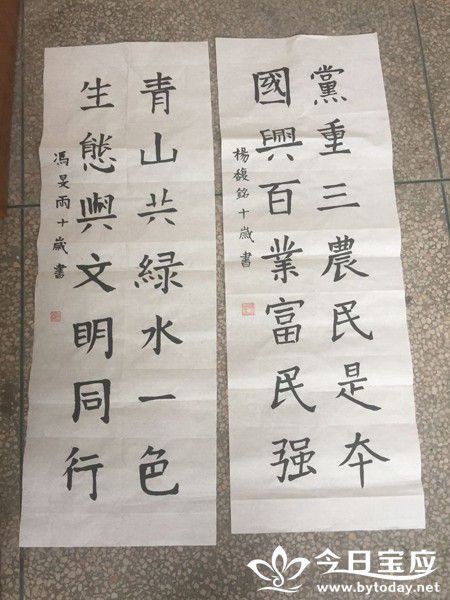 黨重三農民是本
國興百業富民强
楊馥銘十歲書
青山共緑水一色
生態與文明同行
馮旻雨十歲書
今日宝应
www.bytoday.net